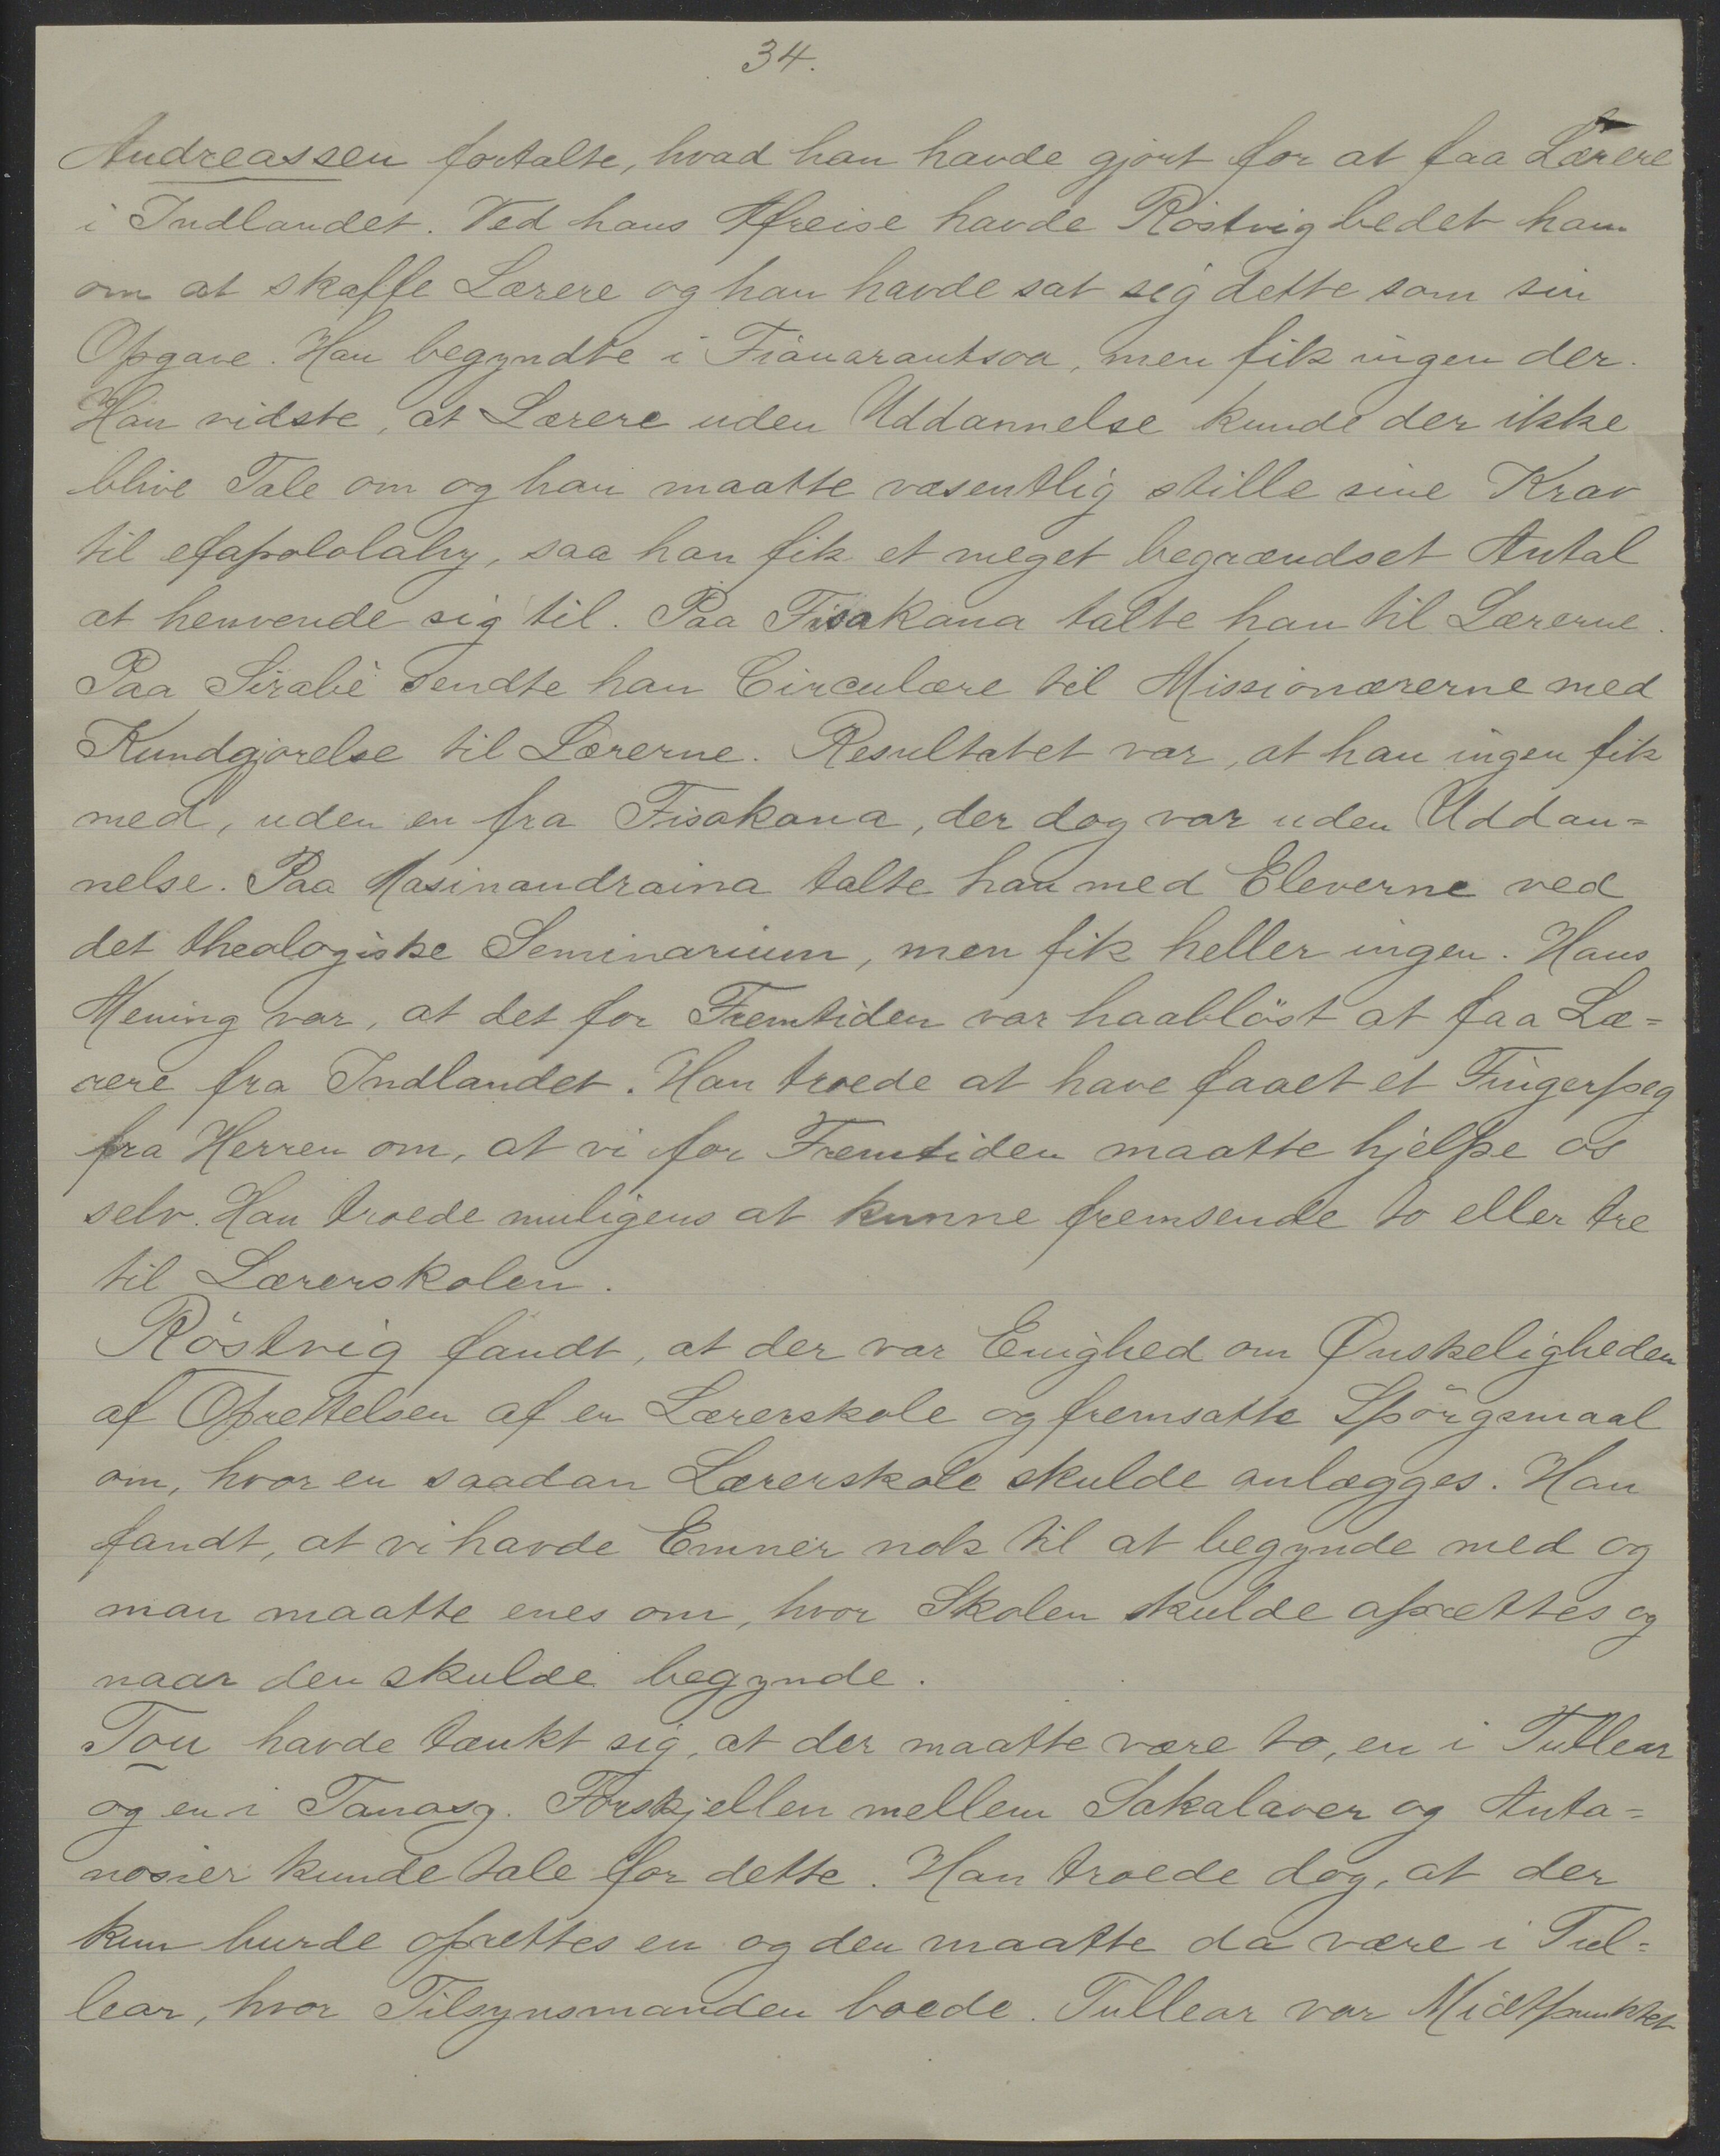 34.
Andreassen fortalte, hvad han havde gjort for at faa Lærere
i Indlandet. Ved hans Afreise havde Röstvig bedet ham
om at skaffe Lærere og han havde sat sig dette som sin
Opgave. Han begyndte i Fianarantsoa, men fik ingen der.
Han vidste, at Lærere uden Uddannelse kunde der ikke
blive Tale om og han maatte væsentlig stille sine Krav
til efapololahy, saa han fik et meget begrændset Antal
at henvende sig til. Paa Fisakana talte han til Lærerne.
Paa Sirabè sendte han Circulære til Missionærerne med
Kundgjørelse til Lærerne. Resultatet var, at han ingen fik
med, uden en fra Fisakana, der dog var uden Uddan=
nelse. Paa Masinandraina talte han med Eleverne ved
det theologiske Seminarium, men fik heller ingen. Hans
Mening var, at det for Fremtiden var haablöst at faa Læ=
rere fra Indlandet. Han troede at have faaet et Fingerpeg
fra Herren om, at vi for Fremtiden maatte hjelpe os
selv. Han troede muligens at kunne fremsende to eller tre
til Lærerskolen.
Röstvig fandt, at der var Enighed om Ønskeligheden
af Oprettelsen af en Lærerskole og fremsatte Spörgsmaal
om, hvor en saadan Lærerskole skulde anlægges. Han
fandt, at vi havde Emner nok til at begynde med og
man maatte enes om, hvor Skolen skulde oprettes og
naar den skulde begynde.
Tou havde tænkt sig, at der maatte være to, en i Tullear
og en i Tanosy. Forskjellen mellem Sakalaver og Anta=
nosier kunde tale for dette. Han troede dog, at der
kun burde oprettes en og den maatte da være i Tul=
lear, hvor Tilsynsmanden boede. Tullear var Midtpunktet